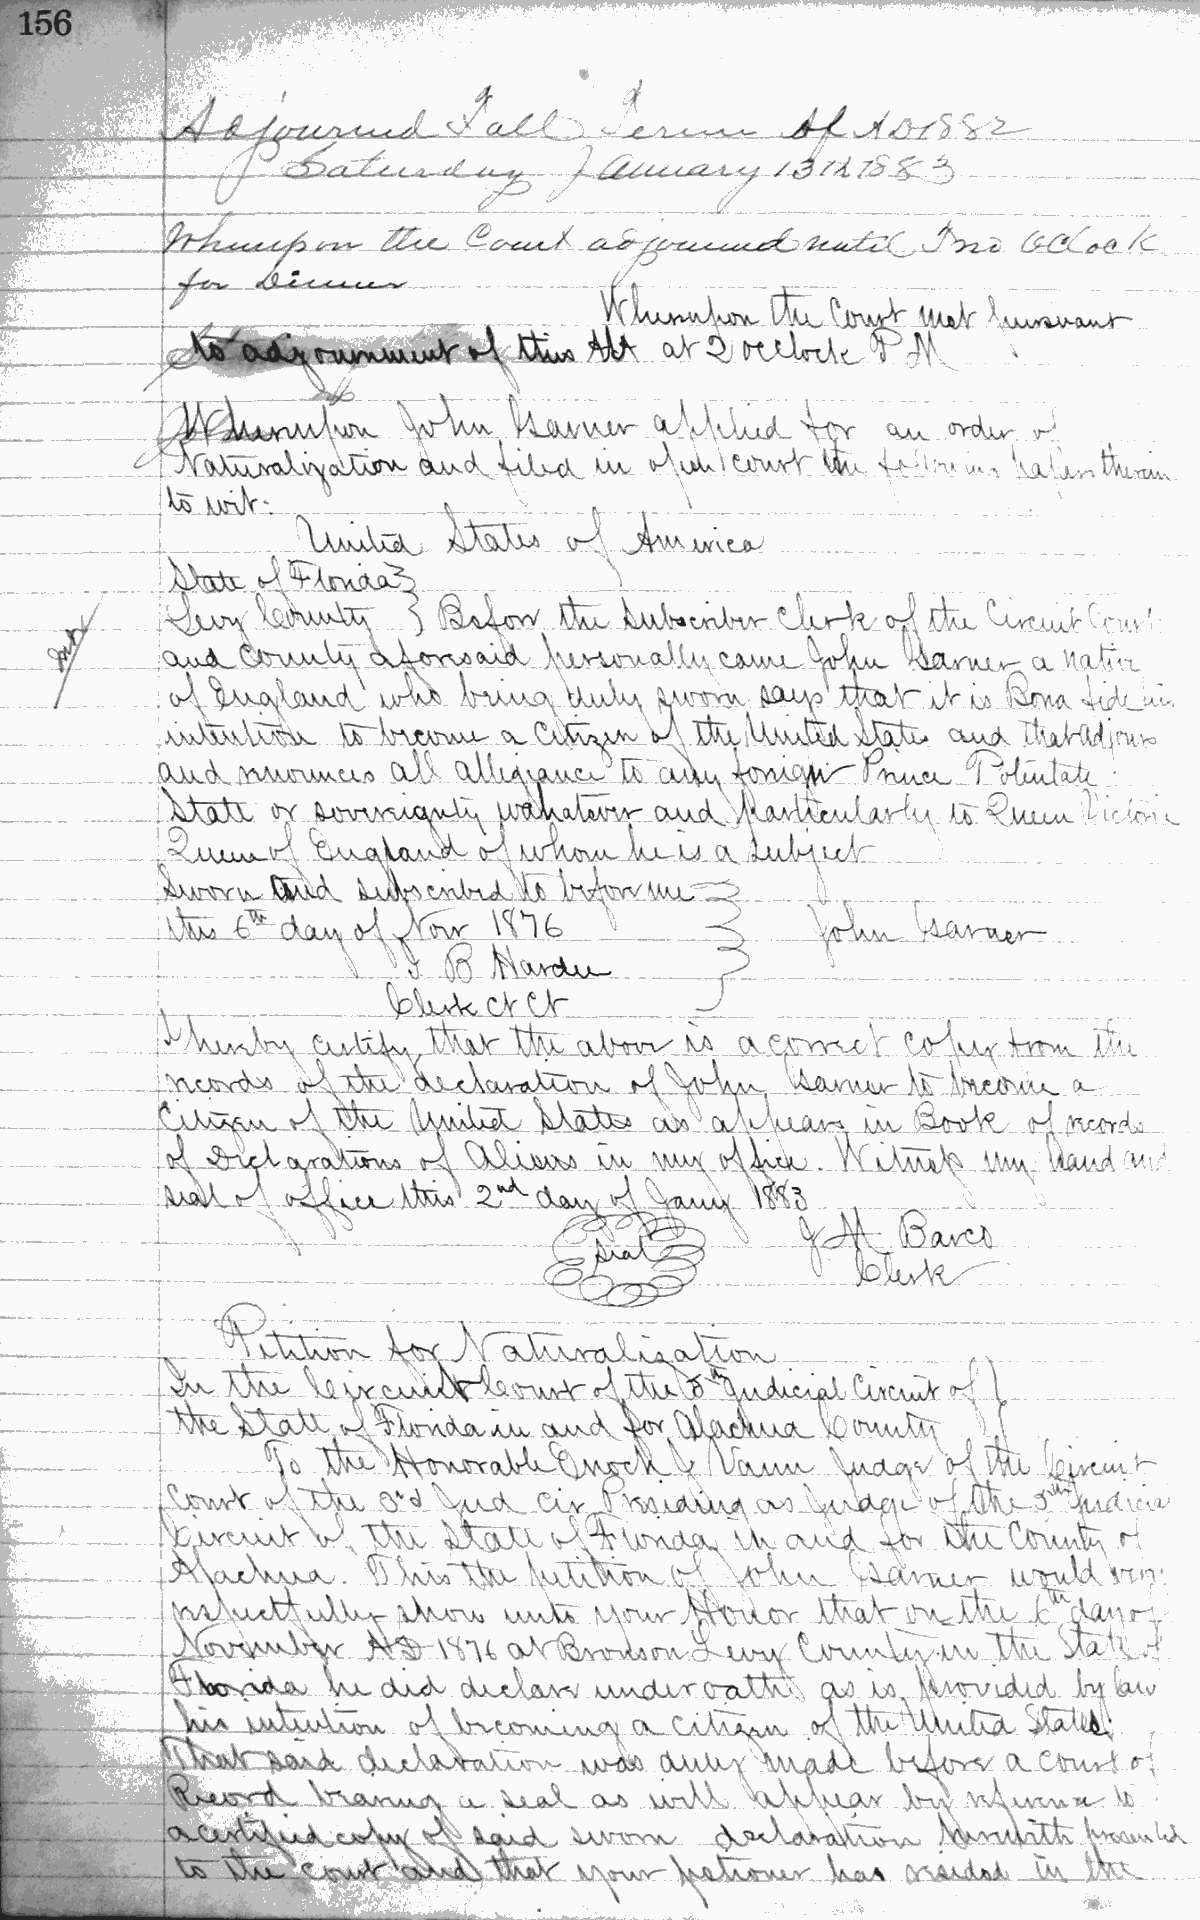 156
Adjourned Fall Term of AD 1882
Saturday January 13th 1883
Whereupon the Court adjourned until Two OClock
for Dinner
Whereupon the Court met pursuant
to adjournment of this at 2 oclock P M
Whereupon John Garner applied for an order of
Naturalization and filed in open court the following papers therein
to wit:
United States of America
State of Florida }
Levy County } Before the subscriber Clerk of the Circuit Court
and County aforesaid personally came John Garner a native
of England who being duly sworn says that it is Bona fide his
intention to become a Citizen of the United States and that
and renounces all allegiance to any foreign Prince Potentate
State or sovereignty whatever and particularly to Queen Victoria
Queen of England of whom he is a subject
Sworn and subscribed to before me }
this 6th day of Novr 1876 } John Garner
B Hardee }
Clerk Ct Ct
I hereby certify that the above is a correct copy from the
records of the declaration of John Garner to become a
Citizen of the United States as appears in Book of records
of Declarations of Aliens in my office. Witness my hand and
seal of office this 2nd day of Jany 1883
seal
J M Barco
Clerk
Petition for Naturalization
In the Circuit Court of the 5th Judicial Circuit of }
the State of Florida in and for Alachua County
To the Honorable Enoch J Vann Judge of the Circuit
Court of the 3rd Jud Cir Presiding as Judge of the 5th Judicial
Circuit of the State of Florida in and for the County of
Alachua. This the petition of John Garner would very
respectfully show unto your Honor that on the 6th day of
November AD 1876 at Bronson Levy County in the State of
Florida he did declare under oath as is provided by law
his intention of becoming a citizen of the United States.
That said declaration was duly made before a court of
Record bearing a seal as will appear by reference to
a certified copy of said sworn declaration herewith presented
to the court and that your petioner has resided in the